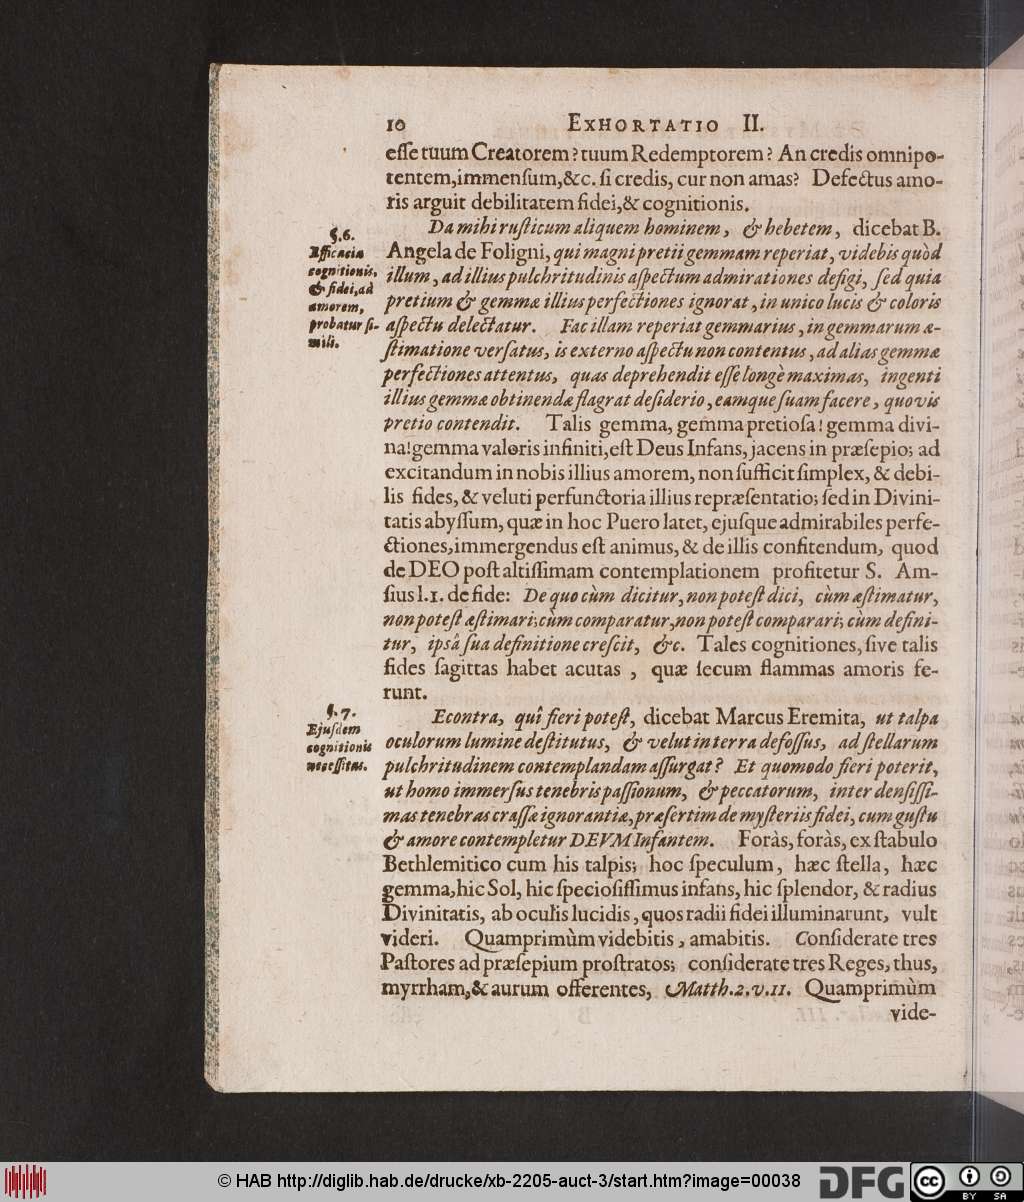 10 EXHORTATIO II.
eſſe tuum Creatorem? tuum Redemptorem? An credis omnipo-
tentem, immenſum, &c. ſi credis, cur non amas? Defectus amo-
ris arguit debilitatem fidei, & cognitionis.
§. 6.
Efficacia
cognitionis,
& fidei, ad
amorem,
probatur ſi-
mili.
Da mihi ruſticum aliquem hominem, & hebetem, dicebat B.
Angela de Foligni, qui magni pretii gemmam reperiat, videbis quòd
illum, ad illius pulchritudinis aſpectum admirationes defigi, ſed quia
pretium & gemmæ illius perfectiones ignorat, in unico lucis & coloris
aſpectu delectatur. Fac illam reperiat gemmarius, in gemmarum æ-
ſtimatione verſatus, is externo aſpectu non contentus, ad alias gemmæ
perfectiones attentus, quas deprehendit eſſe longè maximas, ingenti
illius gemmæ obtinendæ flagrat deſiderio, eamque ſuam facere, quovis
pretio contendit. Talis gemma, gemma pretioſa! gemma divi-
na! gemma valoris infiniti, eſt Deus Infans, jacens in præſepio; ad
excitandum in nobis illius amorem, non ſufficit ſimplex, & debi-
lis fides, & veluti perfunctoria illius repræſentatio; ſed in Divini-
tatis abyſſum, quæ in hoc Puero latet, ejuſque admirabiles perfe-
ctiones, immergendus eſt animus, & de illis confitendum, quod
de DEO poſt altiſſimam contemplationem profitetur S. Am-
ſius l. 1. de fide: De quo cùm dicitur, non poteſt dici, cùm æſtimatur,
non poteſt æſtimari; cùm comparatur, non poteſt comparari; cùm defini-
tur, ipsâ ſua definitione creſcit, &c. Tales cognitiones, ſive talis
fides ſagittas habet acutas, quæ ſecum flammas amoris fe-
runt.
§. 7.
Ejuſdem
cognitionis
neceſſitas.
Econtra, quî fieri poteſt, dicebat Marcus Eremita, ut talpa
oculorum lumine deſtitutus, & velut in terra defoſſus, ad ſtellarum
pulchritudinem contemplandam aſſurgat? Et quomodo fieri poterit,
ut homo immerſus tenebris paſſionum, & peccatorum, inter denſiſſi-
mas tenebras craſſæ ignorantiæ, præſertim de myſteriis fidei, cum guſtu
& amore contempletur DEVM Infantem. Foràs, foràs, ex ſtabulo
Bethlemitico cum his talpis; hoc ſpeculum, hæc ſtella, hæc
gemma, hic Sol, hic ſpecioſiſſimus infans, hic ſplendor, & radius
Divinitatis, ab oculis lucidis, quos radii fidei illuminarunt, vult
videri. Quamprimùm videbitis, amabitis. Conſiderate tres
Paſtores ad præſepium proſtratos; conſiderate tres Reges, thus,
myrrham, & aurum offerentes, Matth. 2. v. 11. Quamprimùm
vide-
© HAB http://diglib.hab.de/drucke/xb-2205-auct-3/start.htm?image=00038
DFG
cc BY SA